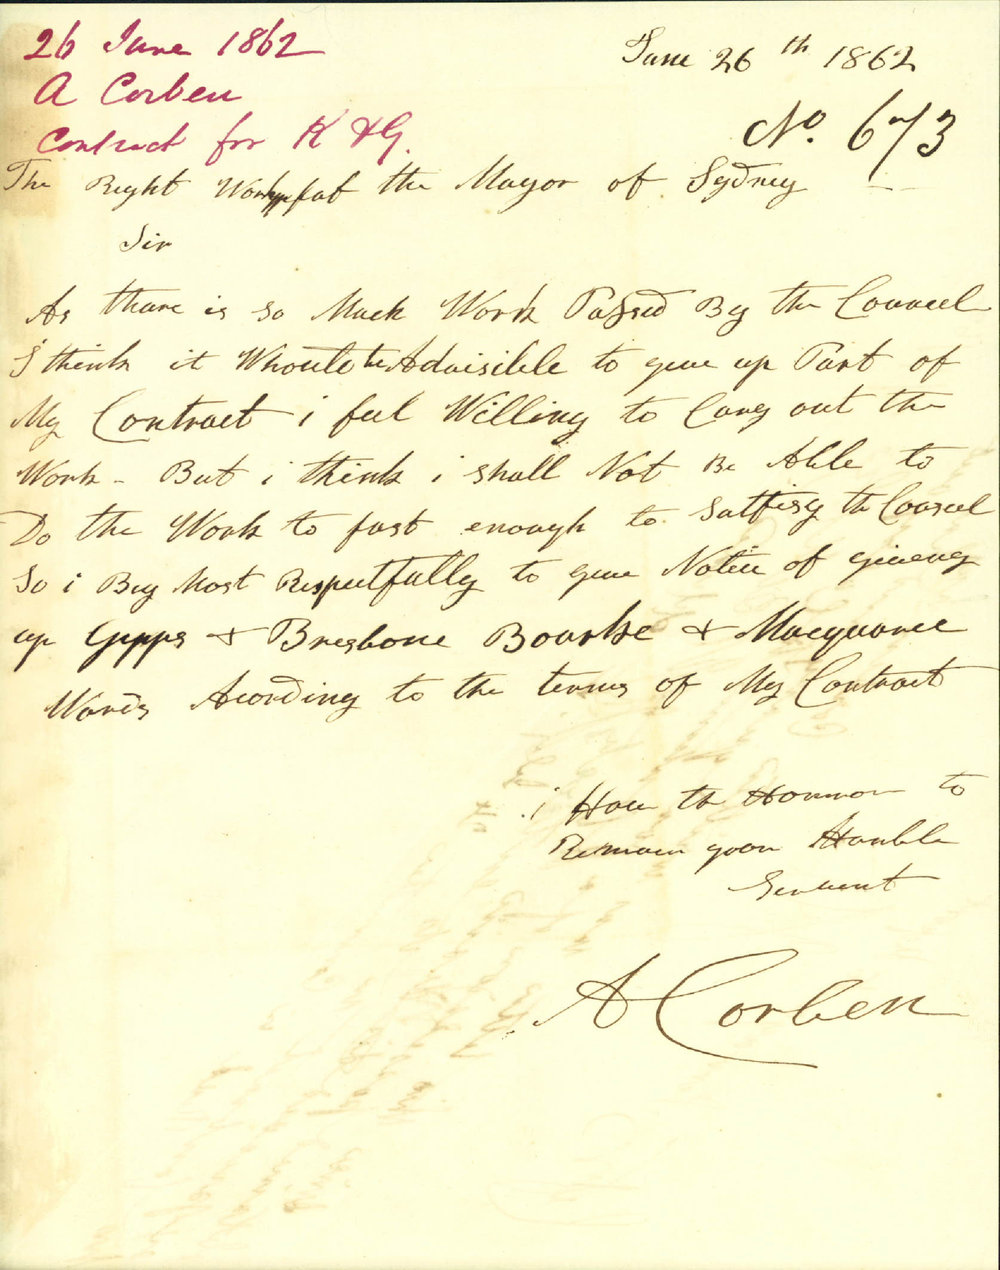 26 June 1862
A Corben
Contract for K & G.
June 26th 1862
No. 673
The Right Worshipful the Mayor of Sydney
Sir
As thare is so Much Work Passed By the Councel
I think it Whould be Advisible to give up Part of
My Contract i feel Willing to Carey out the
Work - But i think i shall Not Be Able to
Do the Work to fast enough to Sattfisy the Councel
So i Beg Most Respectfully to give Notice of giveing
up Gypps & Bresbone Bourke & Macquaree
Wards Acording to the terms of My Contract
i Have the Honnor to
Remain your Humble
Servent
A Corben